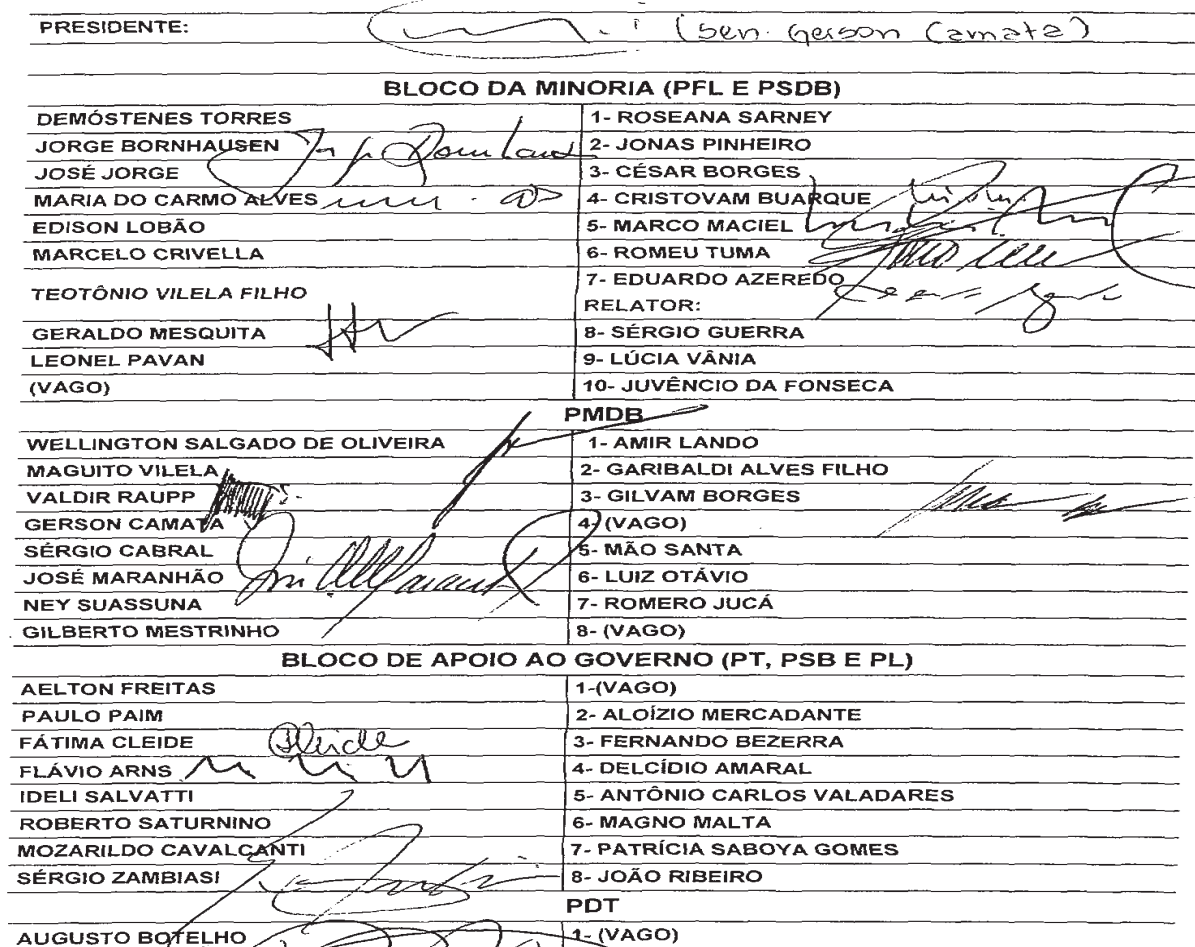 PRESIDENTE: (Sen. Gerson Camata)
BLOCO DA MINORIA (PFL E PSDB)
DEMÓSTENES TORRES 1- ROSEANA SARNEY
JORGE BORNHAUSEN 2- JONAS PINHEIRO
JOSÉ JORGE 3- CÉSAR BORGES
MARIA DO CARMO ALVES 4- CRISTOVAM BUARQUE
EDISON LOBÃO 5- MARCO MACIEL
MARCELO CRIVELLA 6- ROMEU TUMA
TEOTÔNIO VILELA FILHO 7- EDUARDO AZEREDO
RELATOR:
GERALDO MESQUITA 8- SÉRGIO GUERRA
LEONEL PAVAN 9- LÚCIA VÂNIA
(VAGO) 10- JUVÊNCIO DA FONSECA
PMDB
WELLINGTON SALGADO DE OLIVEIRA 1- AMIR LANDO
MAGUITO VILELA 2- GARIBALDI ALVES FILHO
VALDIR RAUPP 3- GILVAM BORGES
GERSON CAMATA 4- (VAGO)
SÉRGIO CABRAL 5- MÃO SANTA
JOSÉ MARANHÃO 6- LUIZ OTÁVIO
NEY SUASSUNA 7- ROMERO JUCÁ
GILBERTO MESTRINHO 8- (VAGO)
BLOCO DE APOIO AO GOVERNO (PT, PSB E PL)
AELTON FREITAS 1-(VAGO)
PAULO PAIM 2- ALOÍZIO MERCADANTE
FÁTIMA CLEIDE 3- FERNANDO BEZERRA
FLÁVIO ARNS 4- DELCÍDIO AMARAL
IDELI SALVATTI 5- ANTÔNIO CARLOS VALADARES
ROBERTO SATURNINO 6- MAGNO MALTA
MOZARILDO CAVALCANTI 7- PATRÍCIA SABOYA GOMES
SÉRGIO ZAMBIASI 8- JOÃO RIBEIRO
PDT
AUGUSTO BOTELHO 1- (VAGO)